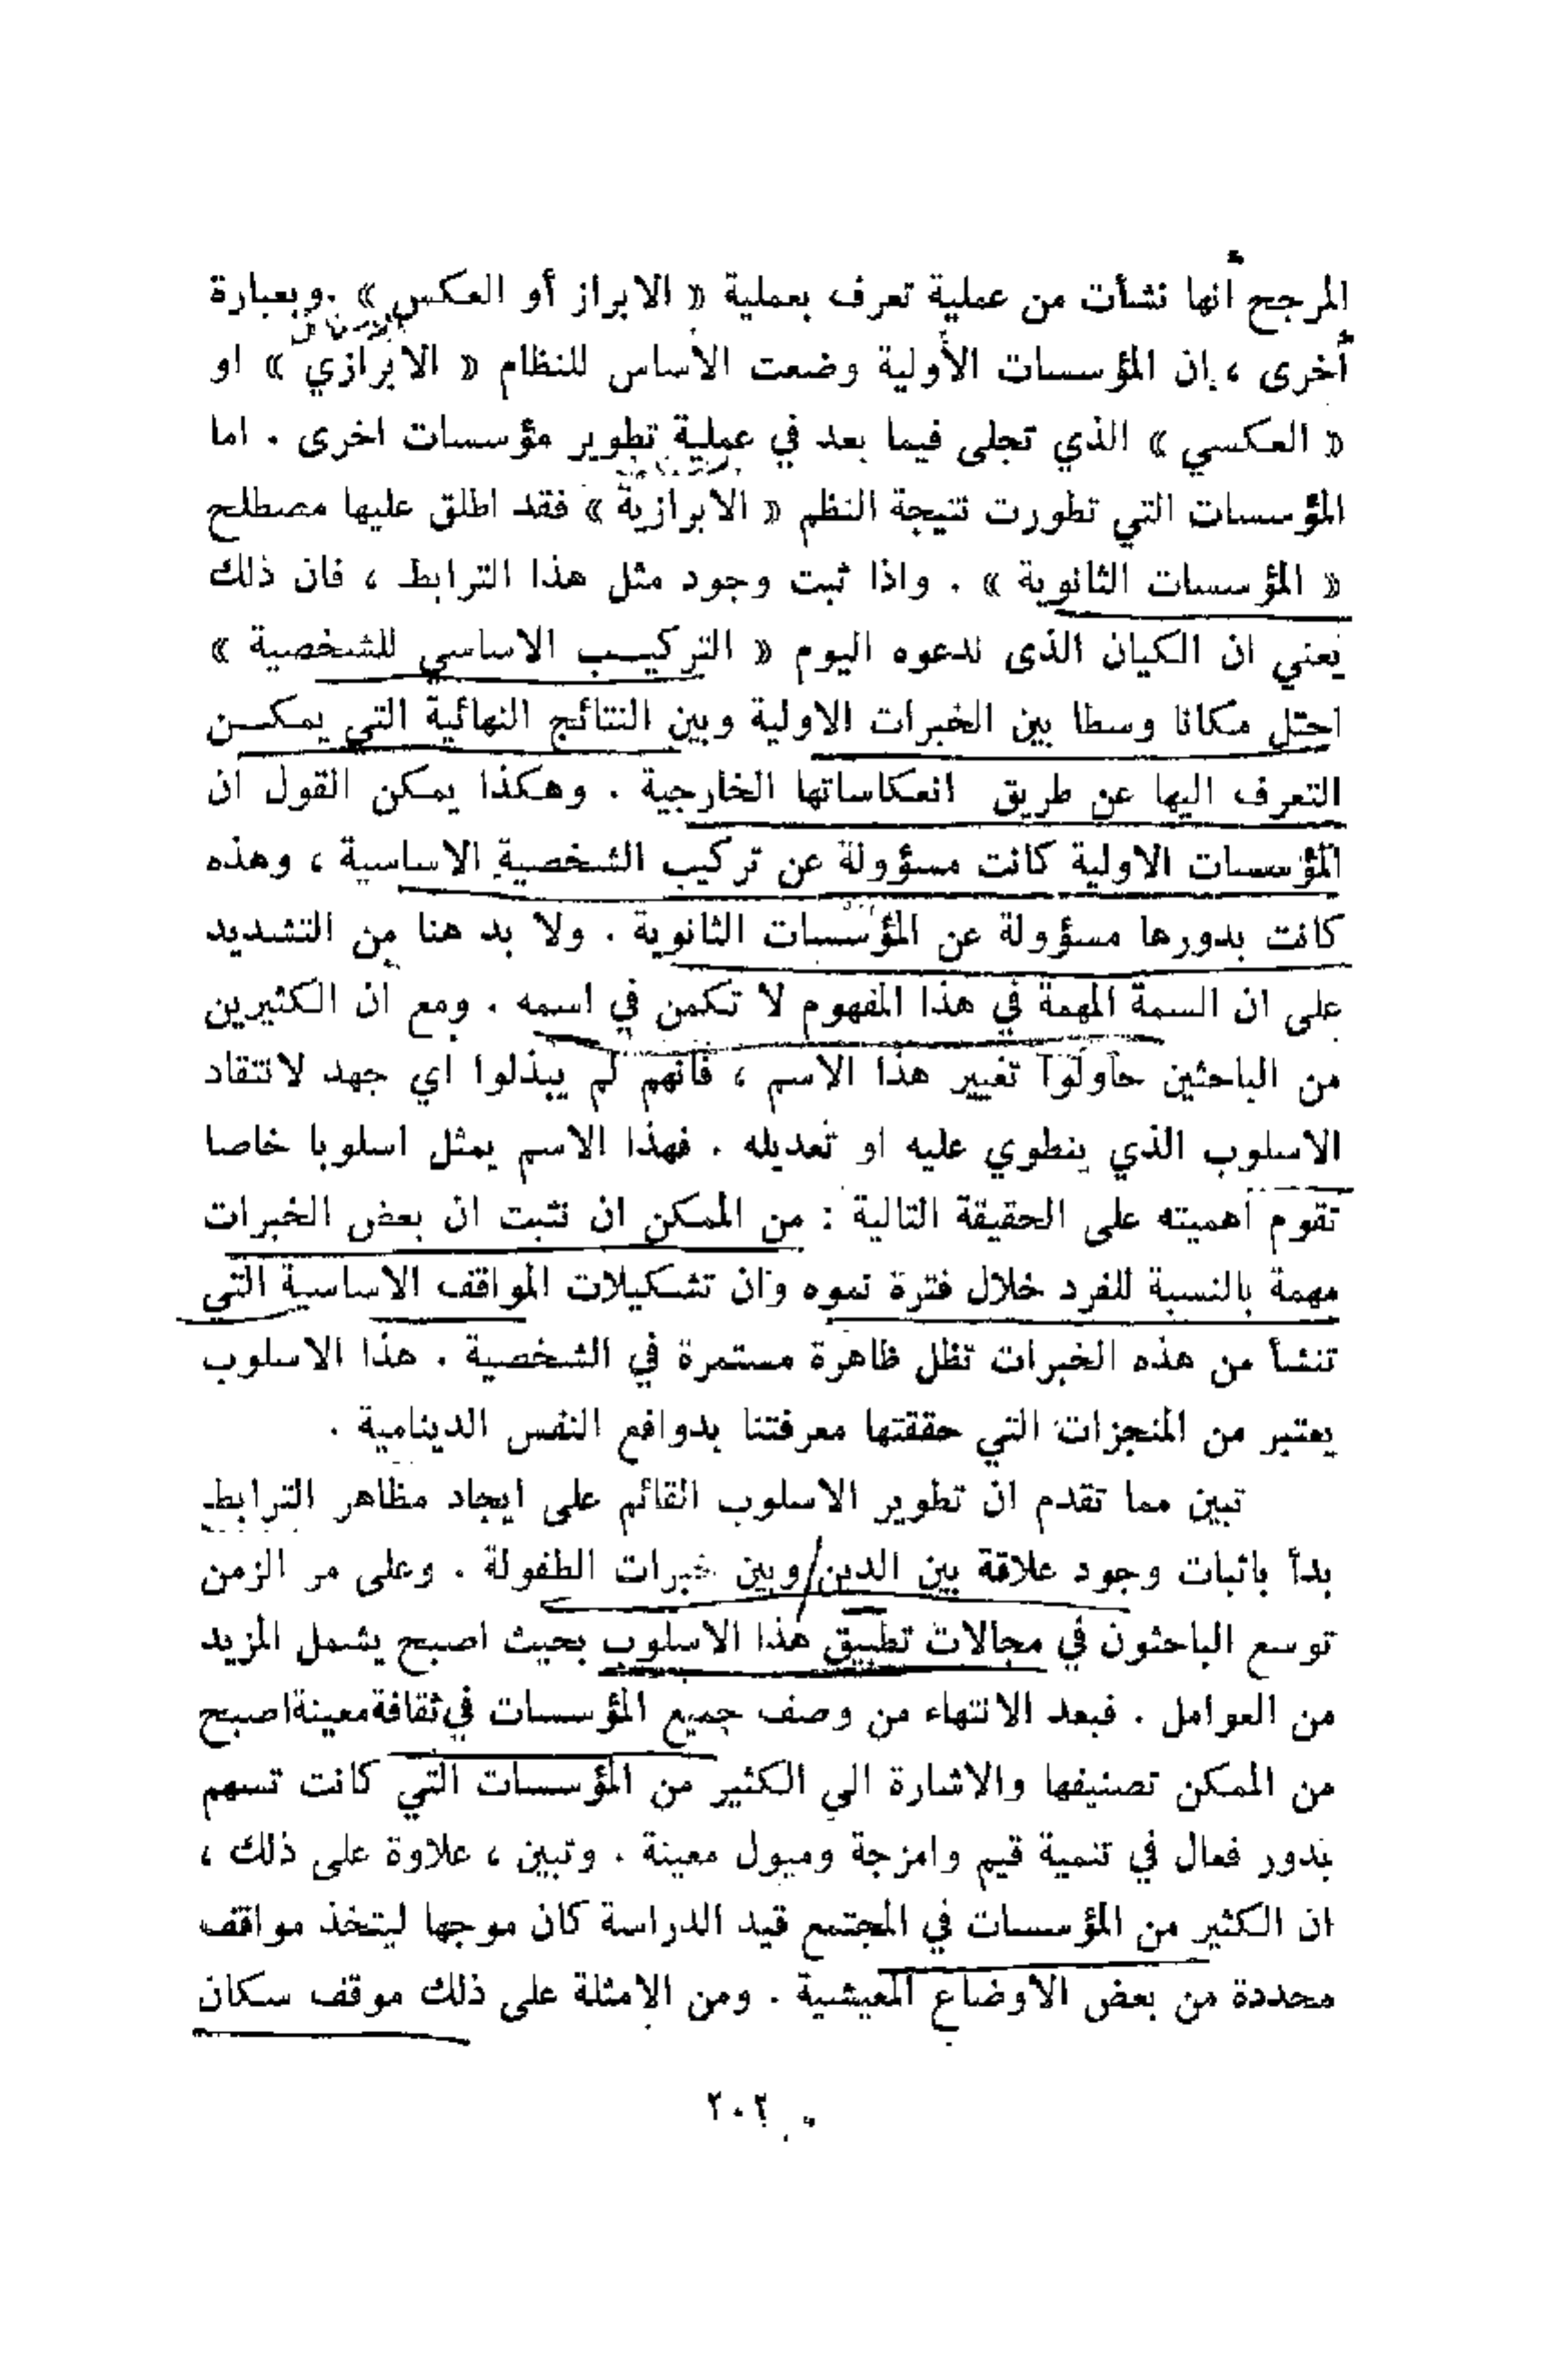 المرجح أنها نشأت من عملية تعرف بعملية « الابراز أو العكس » . وبعبارة
أخرى ، إن المؤسسات الأولية وضعت الأساس للنظام « الابرازي » او
« العكسي » الذي تجلى فيما بعد في عملية تطوير مؤسسات اخرى . اما
المؤسسات التي تطورت نتيجة النظم « الابرازية » فقد اطلق عليها مصطلح
« المؤسسات الثانوية » . واذا ثبت وجود مثل هذا الترابط ، فان ذلك
يعني ان الكيان الذى ندعوه اليوم « التركيب الاساسي للشخصية »
احتل مكانا وسطا بين الخبرات الاولية وبين النتائج النهائية التي يمكن
التعرف اليها عن طريق انعكاساتها الخارجية . وهكذا يمكن القول ان
المؤسسات الاولية كانت مسؤولة عن تركيب الشخصية الاساسية ، وهذه
كانت بدورها مسؤولة عن المؤسسات الثانوية . ولا بد هنا من التشديد
على ان السمة المهمة في هذا المفهوم لا تكمن في اسمه . ومع أن الكثيرين
من الباحثين حاولوا تغيير هذا الاسم ، فانهم لم يبذلوا اي جهد لانتقاد
الاسلوب الذي ينطوي عليه او تعديله . فهذا الاسم يمثل اسلوبا خاصا
تقوم اهميته على الحقيقة التالية : من الممكن ان نثبت ان بعض الخبرات
مهمة بالنسبة للفرد خلال فترة نموه وان تشكيلات المواقف الاساسية التي
تنشأ من هذه الخبرات تظل ظاهرة مستمرة في الشخصية . هذا الاسلوب
يعتبر من المنجزات التي حققتها معرفتنا بدوافع النفس الدينامية .
تبين مما تقدم ان تطوير الاسلوب القائم على ايجاد مظاهر الترابط
بدأ باثبات وجود علاقة بين الدين وبين خبرات الطفولة . وعلى مر الزمن
توسع الباحثون في مجالات تطبيق هذا الاسلوب بحيث اصبح يشمل المزيد
من العوامل . فبعد الانتهاء من وصف جميع المؤسسات في ثقافة معينة اصبح
من الممكن تصنيفها والاشارة الى الكثير من المؤسسات التي كانت تسهم
بدور فعال في تنمية قيم وامزجة وميول معينة . وتبين ، علاوة على ذلك ،
ان الكثير من المؤسسات في المجتمع قيد الدراسة كان موجها ليتخذ مواقف
محددة من بعض الاوضاع المعيشية . ومن الامثلة على ذلك موقف سكان
٢٠٢